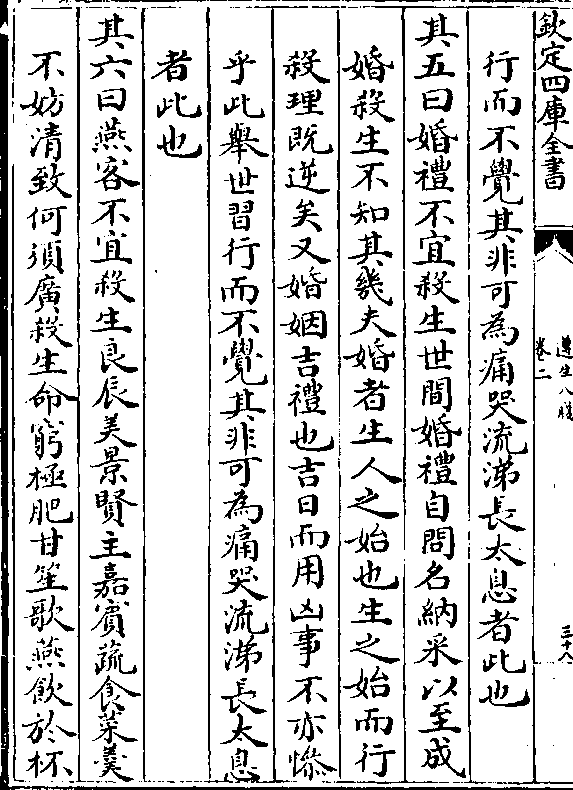 欽定四庫全書
遵生八牋
卷二
三十八
行而不覺其非可為痛哭流涕長太息者此也
其五曰婚禮不宜殺生世間婚禮自問名納采以至成
婚殺生不知其幾夫婚者生人之始也生之始而行
殺理既逆矣又婚姻吉禮也吉日而用凶事不亦慘
乎此舉世習行而不覺其非可為痛哭流涕長太息
者此也
其六曰燕客不宜殺生良辰美景賢主嘉賓蔬食菜羹
不妨清致何須廣殺生命窮極肥甘笙歌燕飲於杯